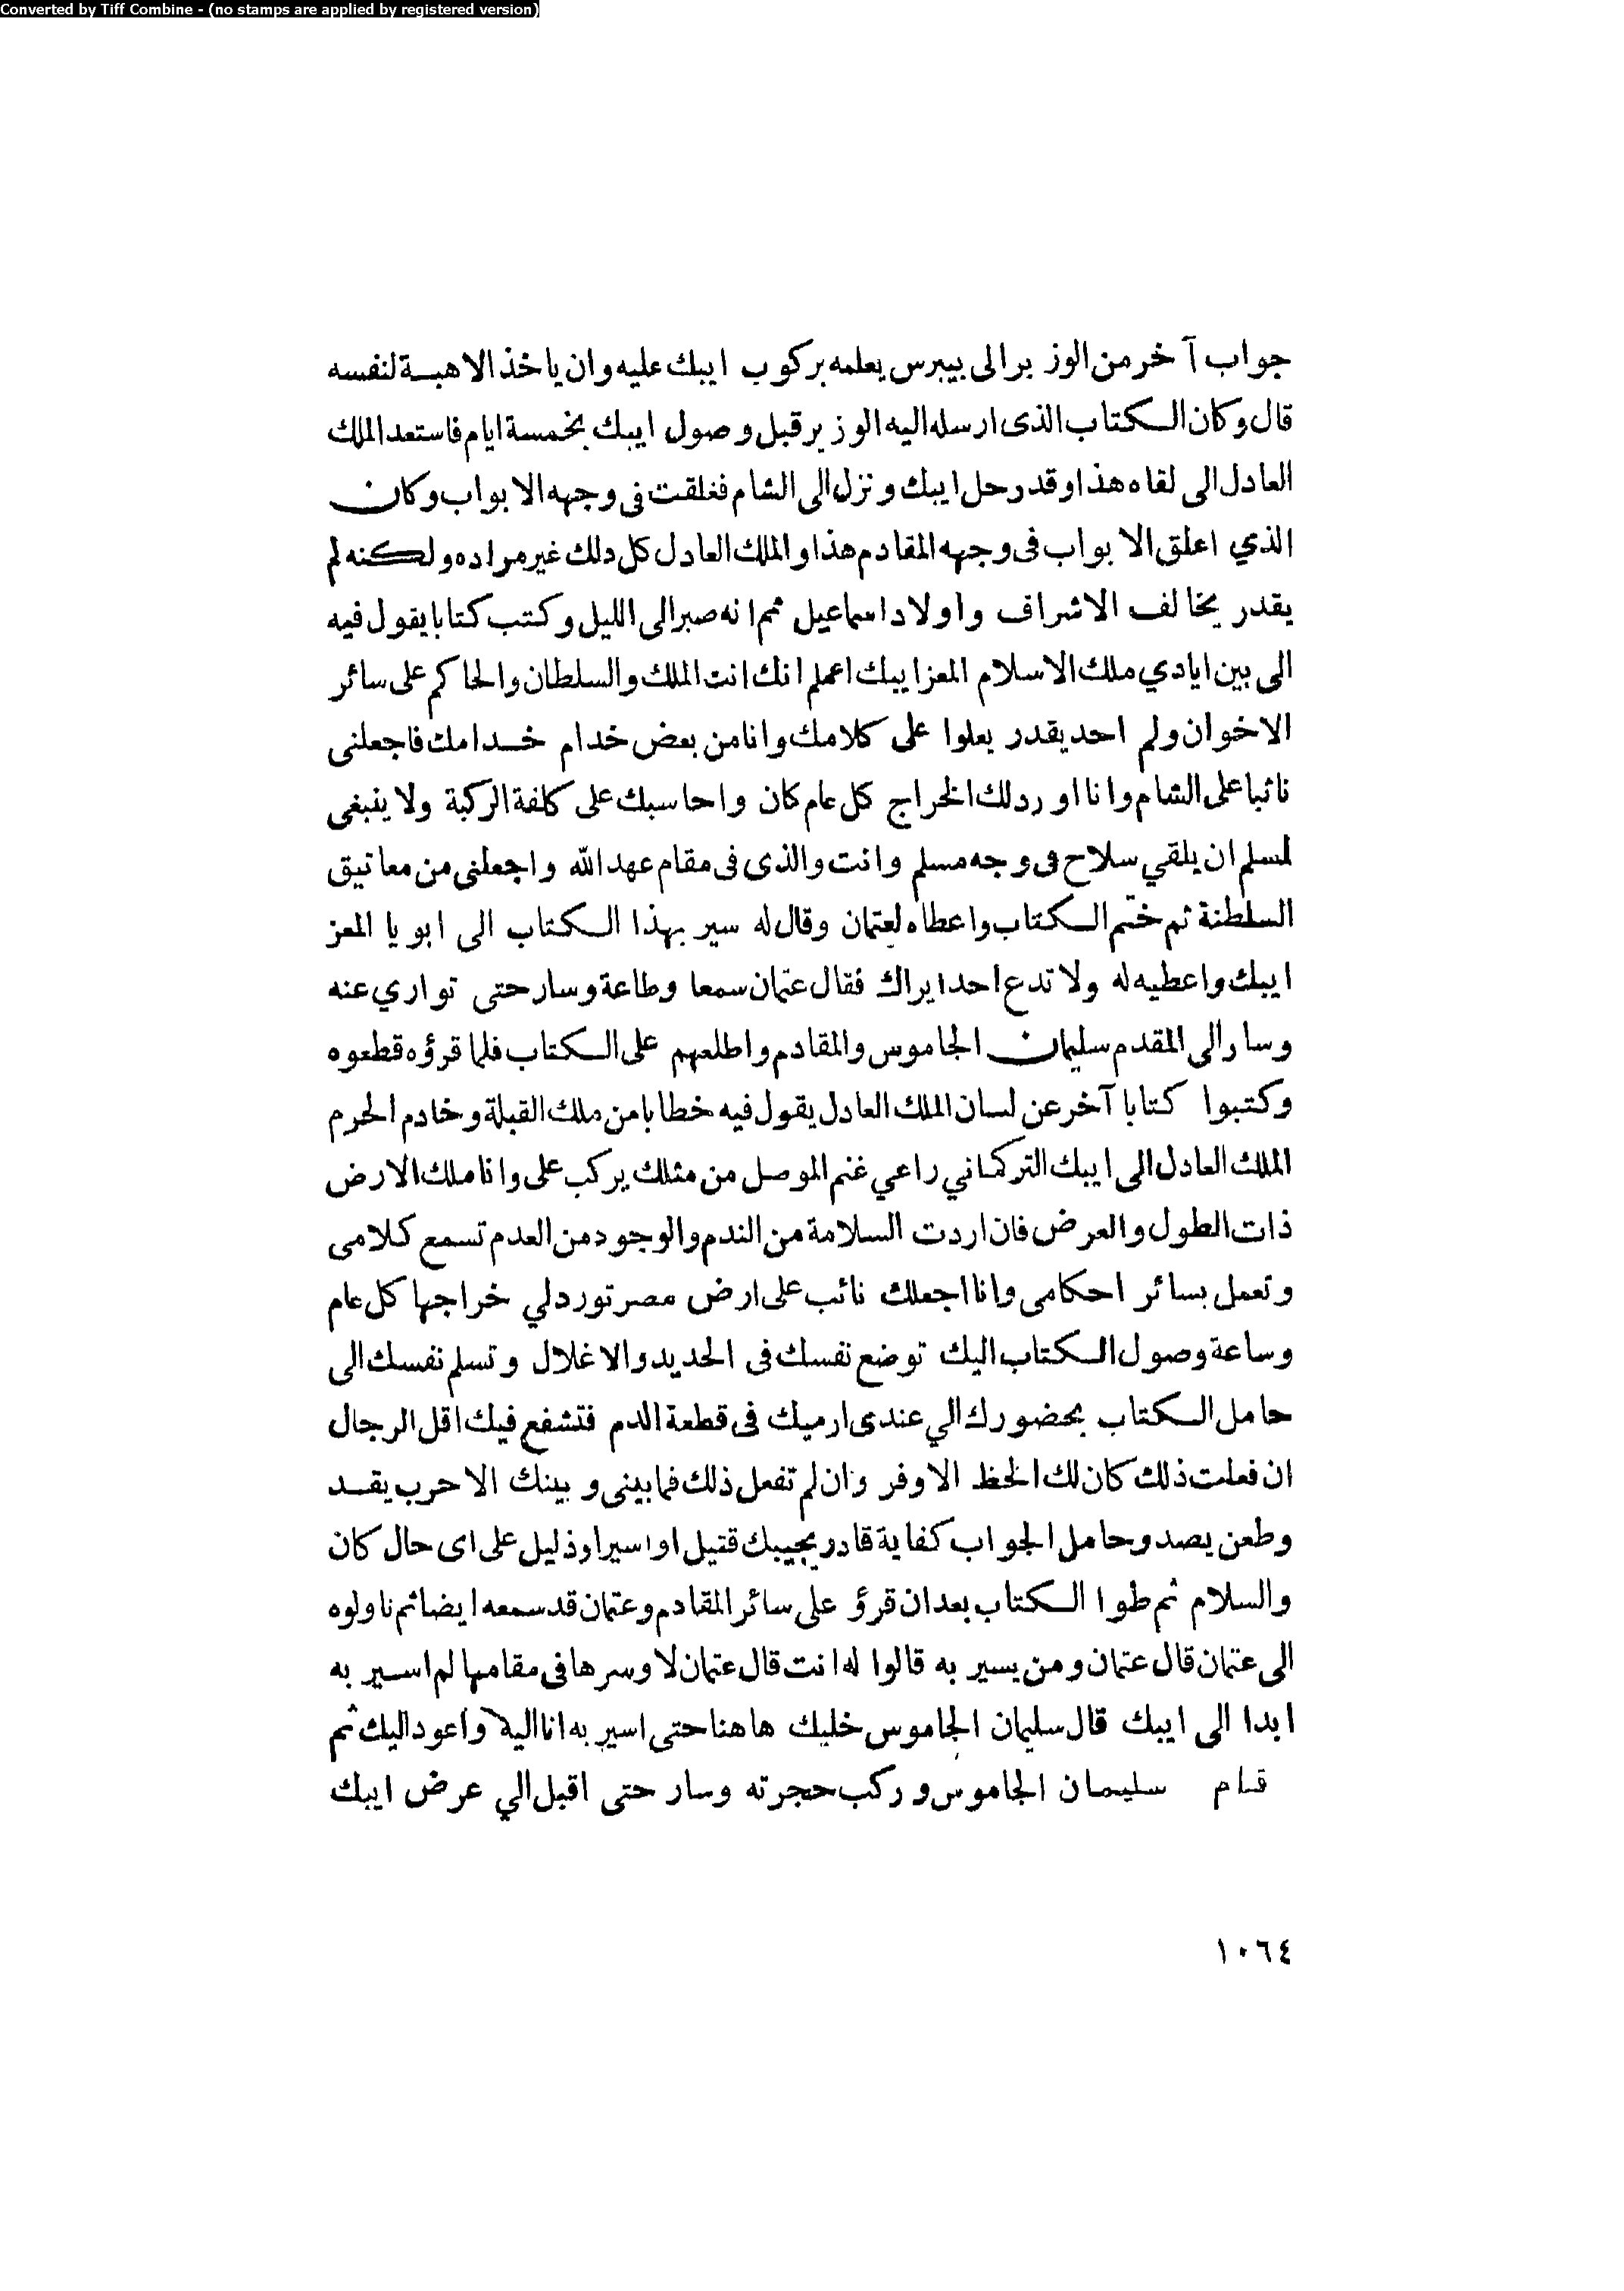 Converted by Tiff Combine - (no stamps are applied by registered version)
جواب آخر من الوزير الى بيبرس يعلمه بركوب ايبك عليه وان ياخذ الاهبة لنفسه
قال وكان الكتاب الذى ارسله اليه الوزير قبل وصول ايبك بخمسة ايام فاستعد الملك
العادل الى لقاه هذا وقد رحل ايبك ونزل الى الشام فغلقت فى وجهه الابواب وكان
الذي اعلق الابواب فى وجهه المقادم هذا والملك العادل كل دلك غير مراده ولكنه لم
يقدر يخالف الاشراف واولاد اسماعيل ثم انه صبر الى الليل وكتب كتابا يقول فيه
الى بين ايادي ملك الاسلام المعز ايبك اعملم انك انت الملك والسلطان والحاكم على سائر
الاخوان ولم احد يقدر يعلوا على كلامك وانا من بعض خدام خدامك فاجعلنى
نائبا على الشام وانا اورد لك الخراج كل عام كان واحاسبك على كلفة الركبة ولا ينبغى
لمسلم ان يلقي سلاح فى وجه مسلم وانت والذى فى مقام عهد الله واجعلنى من معاتيق
السلطنة ثم ختم الكتاب واعطاه لعثمان وقال له سير بهذا الكتاب الى ابويا المعز
ايبك واعطيه له ولا تدع احدا يراك فقال عثمان سمعا وطاعة وسار حتى تواري عنه
وسار الى المقدم سليمان الجاموس والمقادم واطلعهم على الكتاب فلما قرؤه قطعوه
وكتبوا كتابا آخر عن لسان الملك العادل يقول فيه خطابا من ملك القبلة وخادم الحرم
الملك العادل الى ايبك التركمانى راعي غنم الموصل من مثلك يركب على وانا ملك الارض
ذات الطول والعرض فان اردت السلامة من الندم والوجود من العدم تسمع كلامى
وتعمل بسائر احكامى وانا اجعلك نائب على ارض مصر تورد لي خراجها كل عام
وساعة وصول الكتاب اليك توضع نفسك فى الحديد والاغلال وتسلم نفسك الى
حامل الكتاب بحضورك الي عندى ارميك فى قطعة الدم فتشفع فيك اقل الرجال
ان فعلت ذلك كان لك الحظ الاوفر وان لم تفعل ذلك فما بينى وبينك الا حرب يقد
وطعن يصد وحامل الجواب كفاية قادر يجيبك قتيل او اسير او ذليل على اى حال كان
والسلام ثم طوا الكتاب بعد ان قرؤ على سائر المقادم وعثمان قد سمعه ايضا ثم ناولوه
الى عثمان قال عثمان ومن يسير به قالوا له انت قال عثمان لا وسرها فى مقامها لم اسير به
ابدا الى ايبك قال سليمان الجاموس خليك هاهنا حتى اسير به انا اليه واعود اليك ثم
قام سليمان الجاموس وركب حجرته وسار حتى اقبل الي عرض ايبك
١٠٦٤